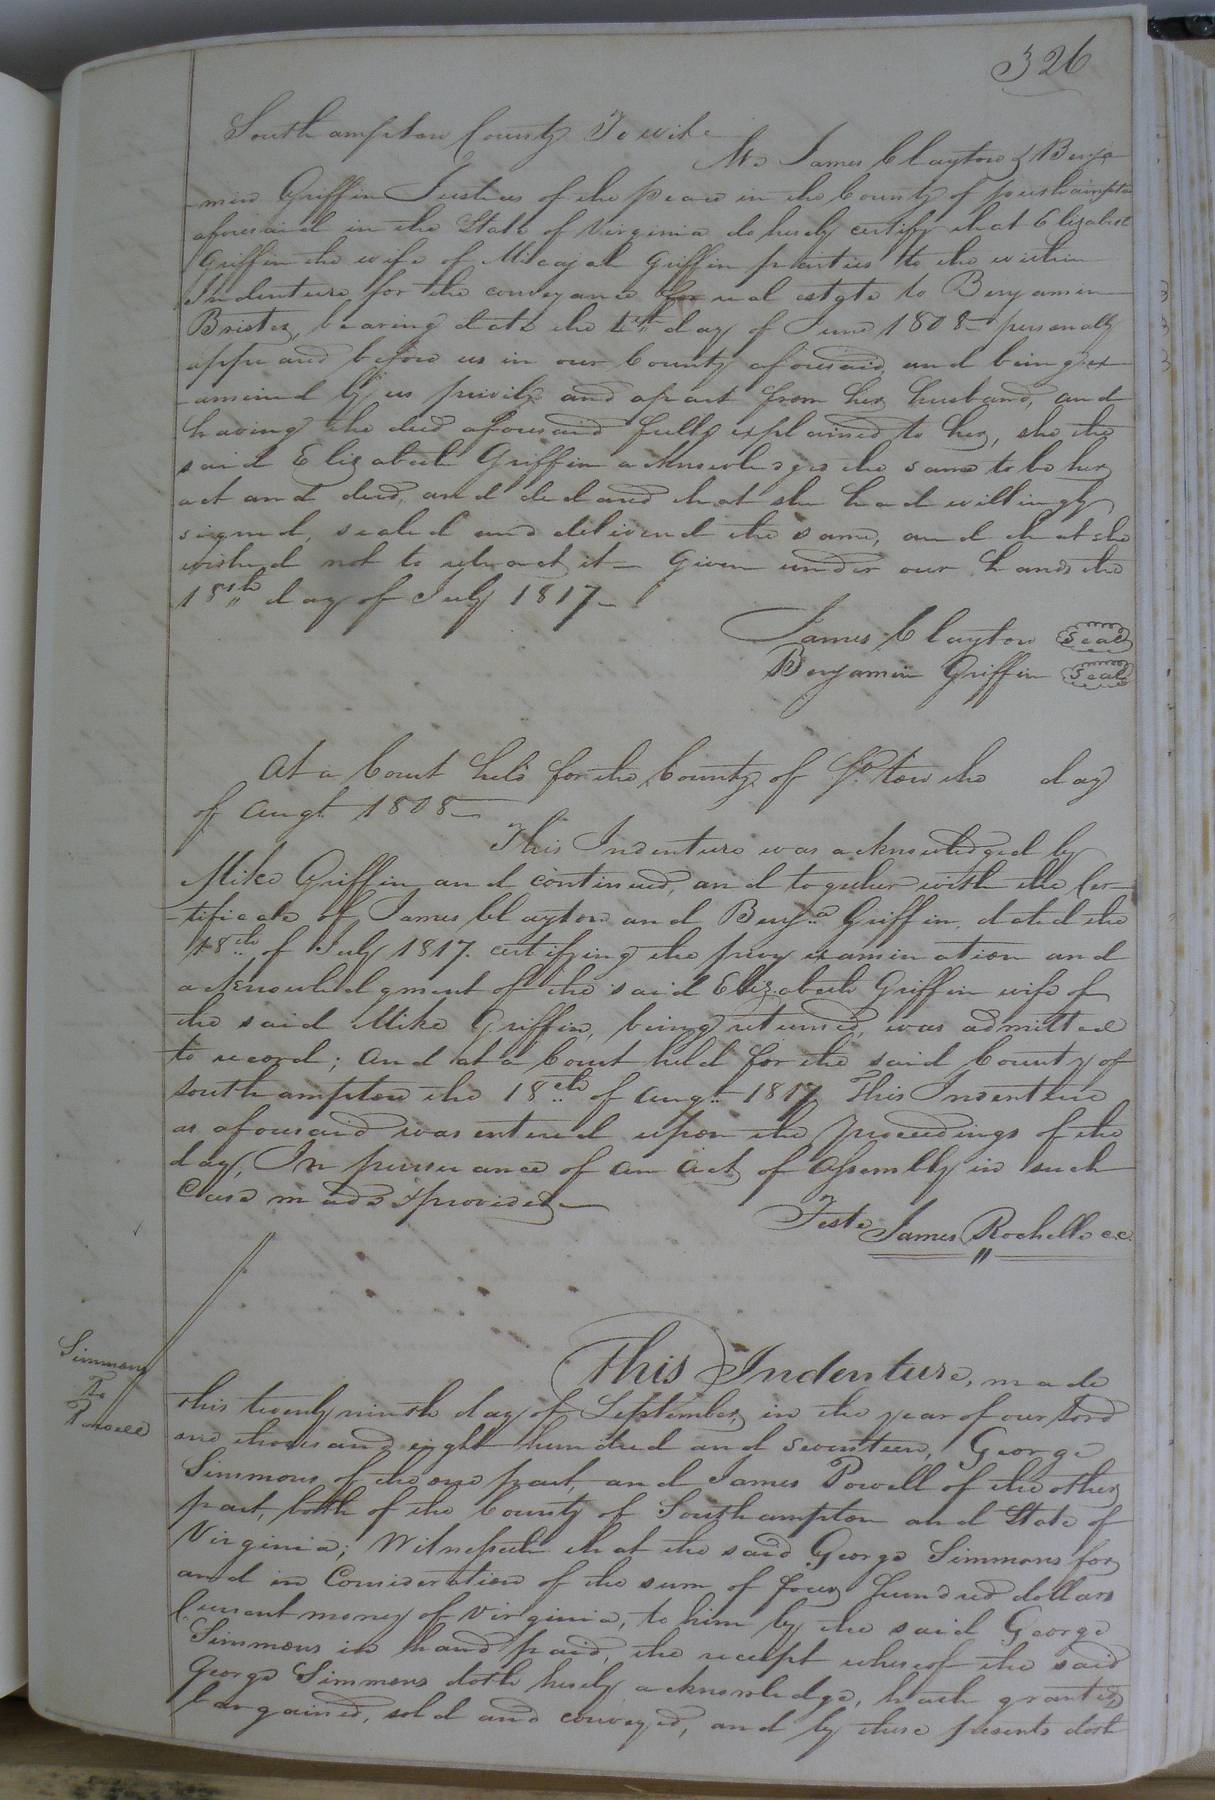 326
Southampton County To wit
We James Clayton & Benja
min Griffin Justices of the peace in the County of Southampton
aforesaid in the State of Virginia do hereby certify that Elizabeth
Griffin the wife of Micajah Griffin parties to the within
Indenture for the conveyance for real estate to Benjamin
Brister, bearing date the day of June 1808 personally
appeared before us in our County aforesaid, and being ex-
-amined by us privily and apart from her husband, and
having the deed aforesaid fully explained to her, she the
said Elizabeth Griffin acknowledges the same to be her
act and deed, and declared that she had willingly
signed, sealed and delivered the same, and that she
wished not to retract it - Given under our hands the
18th day of July 1817 -
James Clayton Seal
Benjamin Griffin Seal
At a Court held for the County of So.ton the day
of Augt. 1808 -
This Indenture was acknowledged by
Mike Griffin and continued, and together with the Cer-
-tificate of James Clayton and Benja. Griffin, dated the
18th of July 1817. certifying the privy examination and
acknowledgment of the said Elizabeth Griffin wife of
the said Mike Griffin, being returned, was admitted
to record; And at a Court held for the said County of
Southampton the 18th of Augt. 1817 This Indenture
as aforesaid was entered upon the proceedings of the
day, In pursuance of an Act of Assembly in such
Case made & provided -
Teste James Rochelle c.c.
Simmons
To
Powell
This Indenture, made
this twenty ninth day of September, in the year of our Lord
one thousand eight hundred and seventeen, George
Simmons of the one part, and James Powell of the other
part, both of the County of Southampton and State of
Virginia; Witnesseth that the said George Simmons for
and in Consideration of the sum of four hundred dollars
Current money of Virginia, to him by the said George
Simmons in hand paid, the receipt whereof the said
George Simmons doth hereby acknowledge, hath granted
bargained, sold and conveyed, and by these presents doth